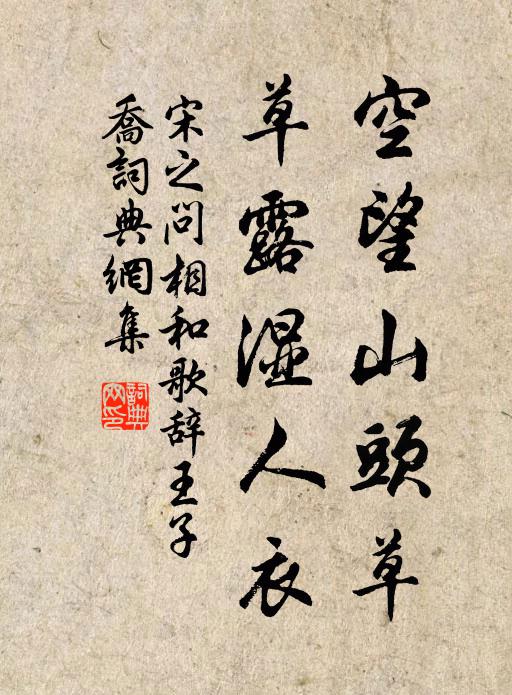 空望山頭草
草露湿人衣
宋之问相和歌辞王子
喬詞典網集
詞典
网印